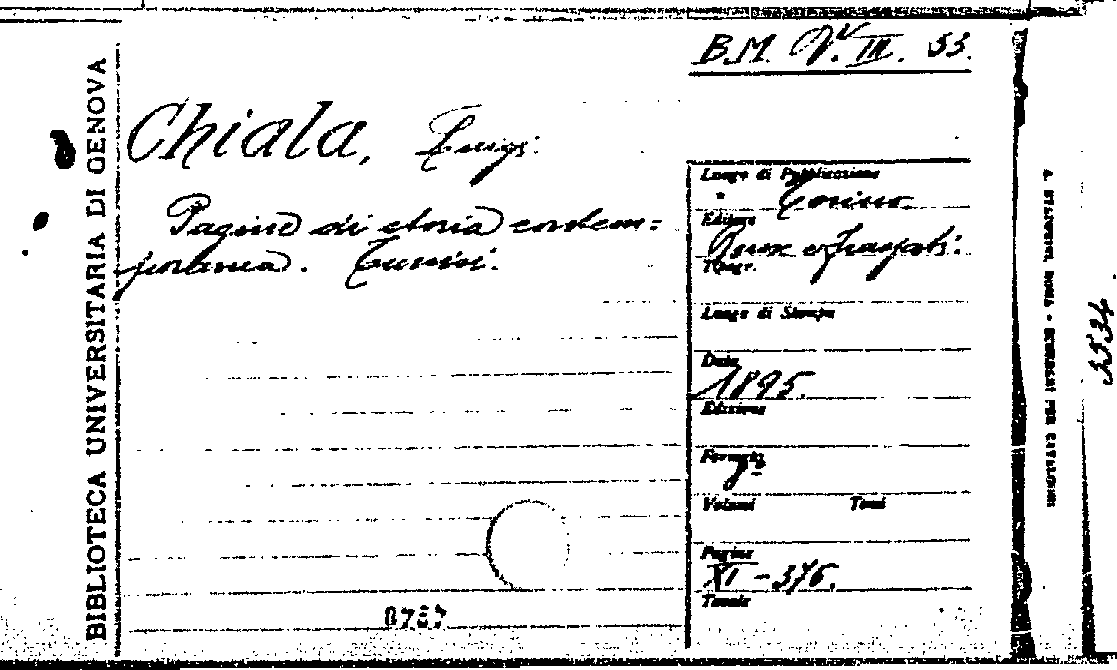 BIBLIOTECA UNIVERSITARIA DI GENOVA
B.M. V. III. 53.
Chiala, Luigi.
Pagine di storia contem=
poranea. Tunisi.
Luogo di Pubblicazione
Torino
Editore
Roux e Frassati.
Tipogr.
Luogo di Stampa
Data
1895.
Edizione
Formato
8º
Volumi Tomi
Pagine
XI - 376.
Tavole